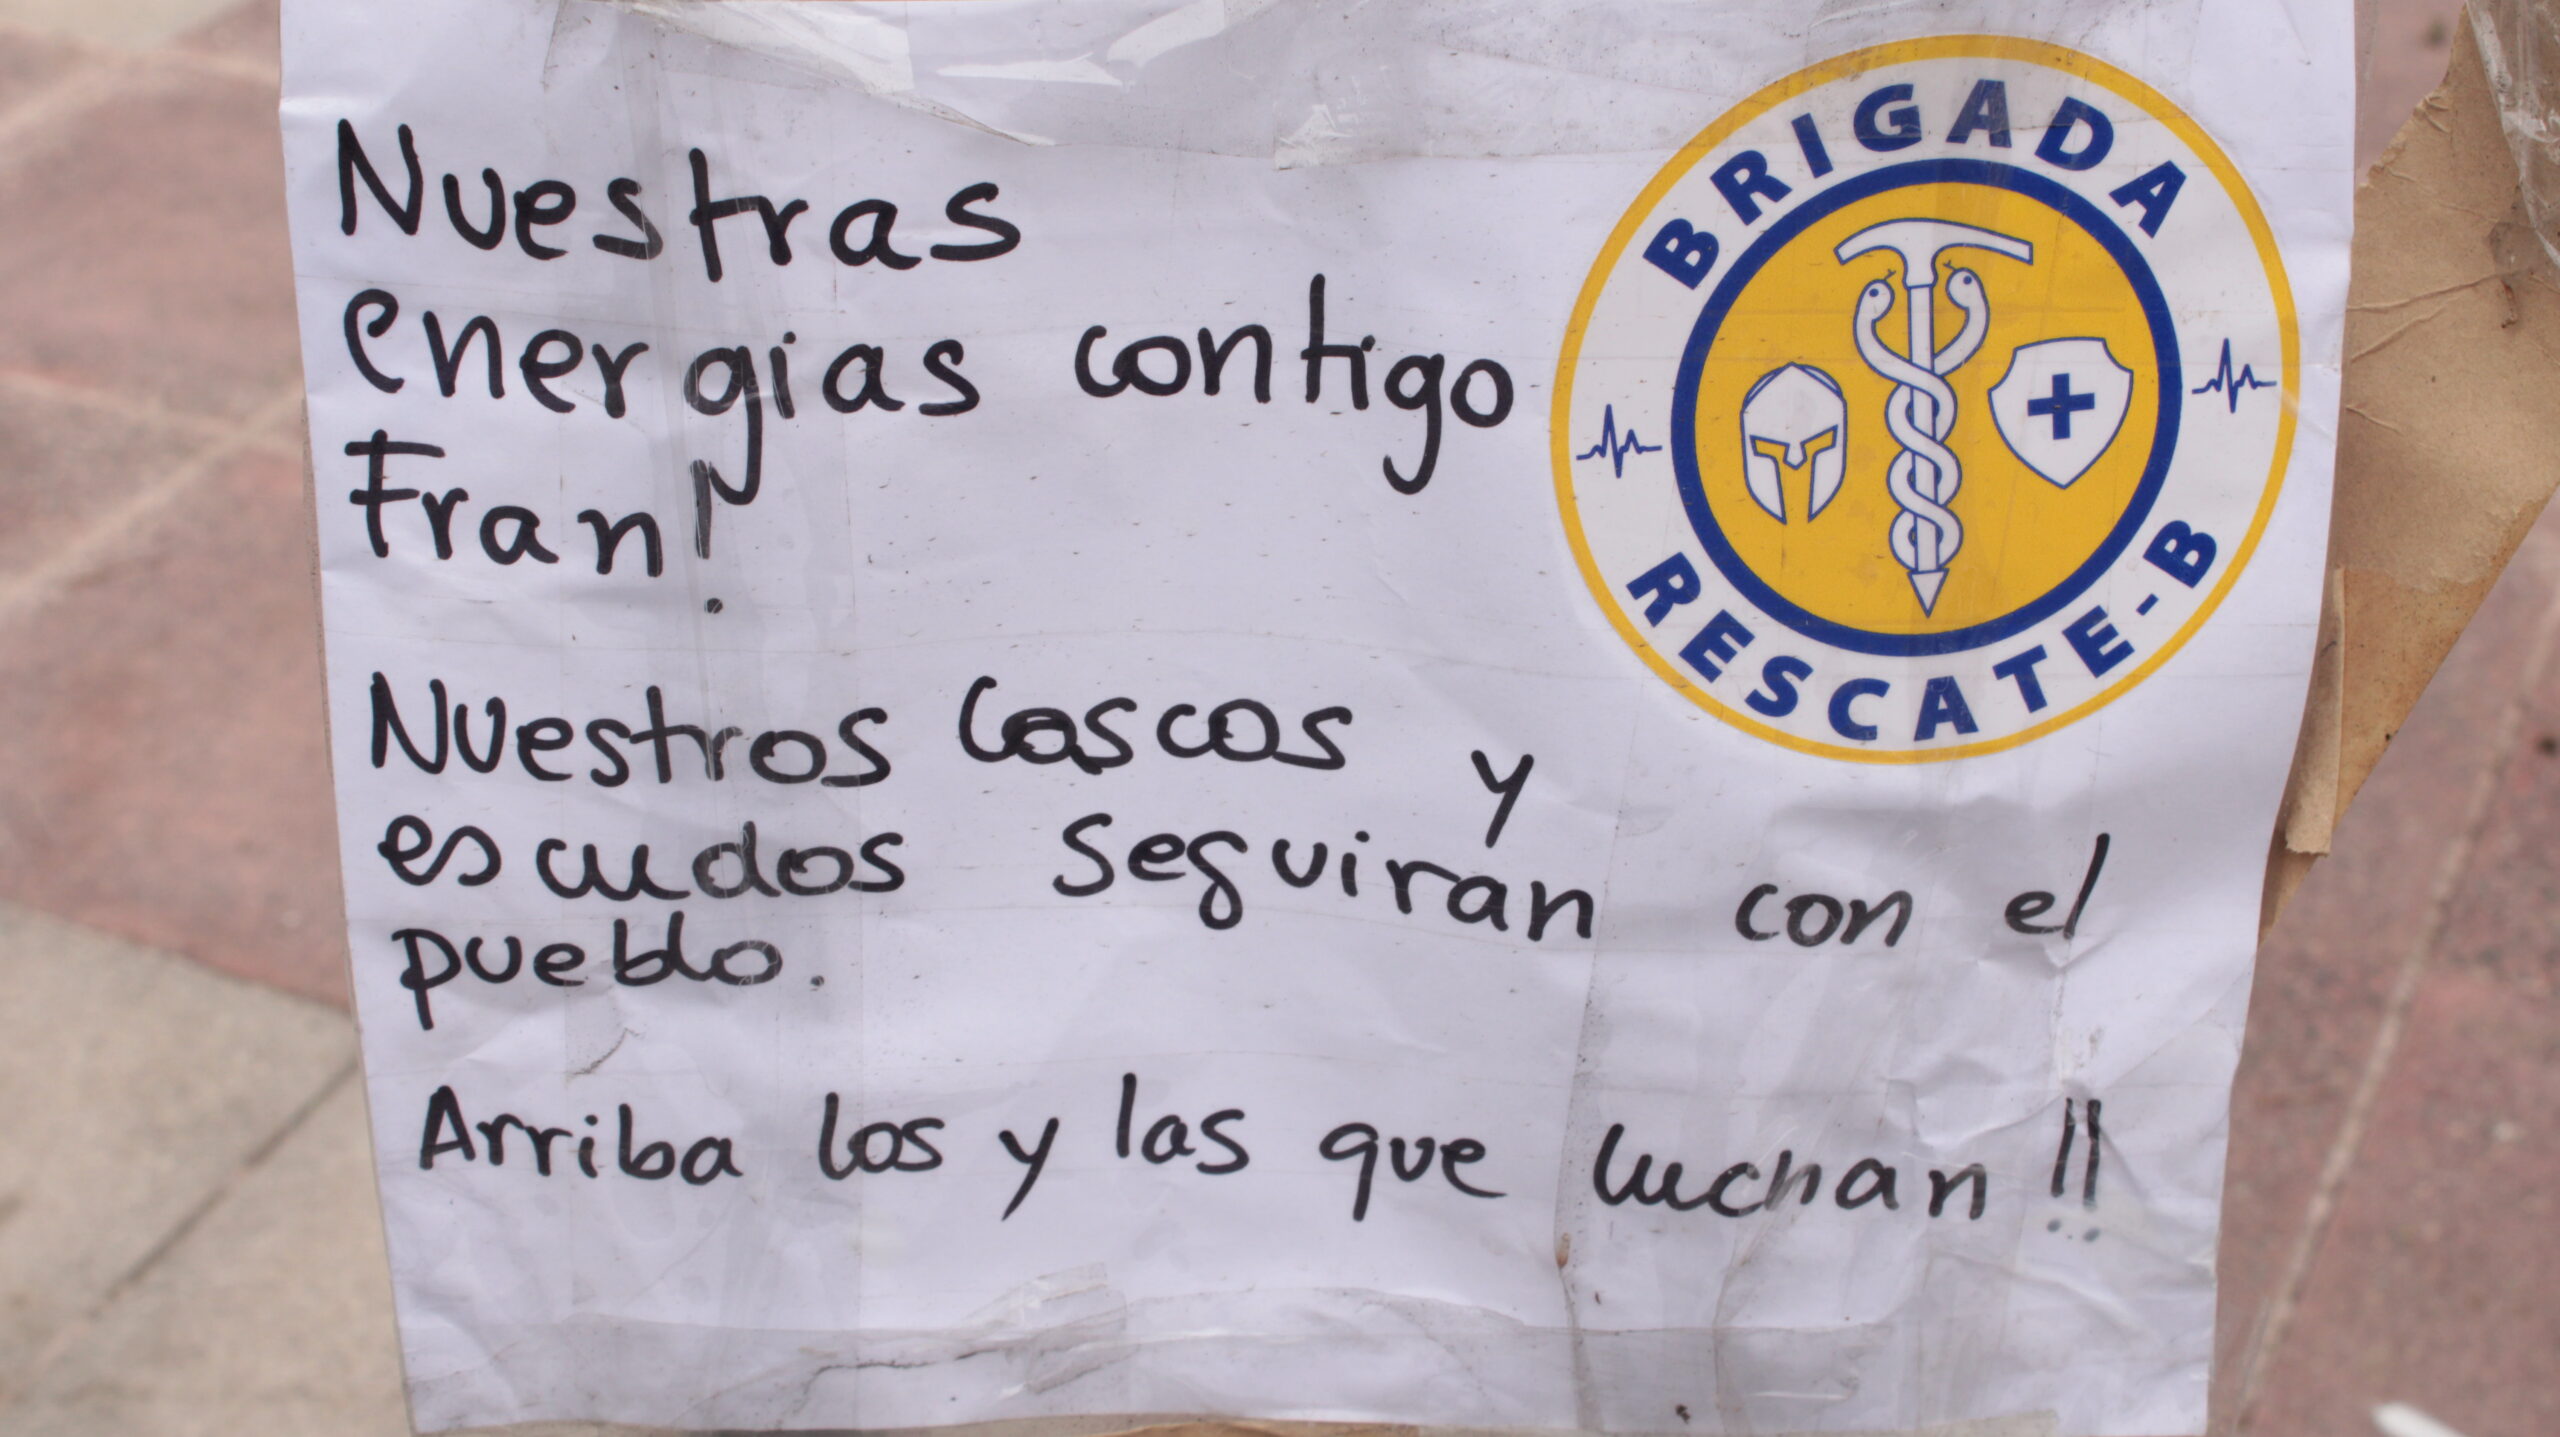 Nuestras
energias contigo
Fran!
Nuestros Cascos y
escudos seguiran con el
pueblo.
Arriba los y las que luchan !!
BRIGADA
RESCATE-B